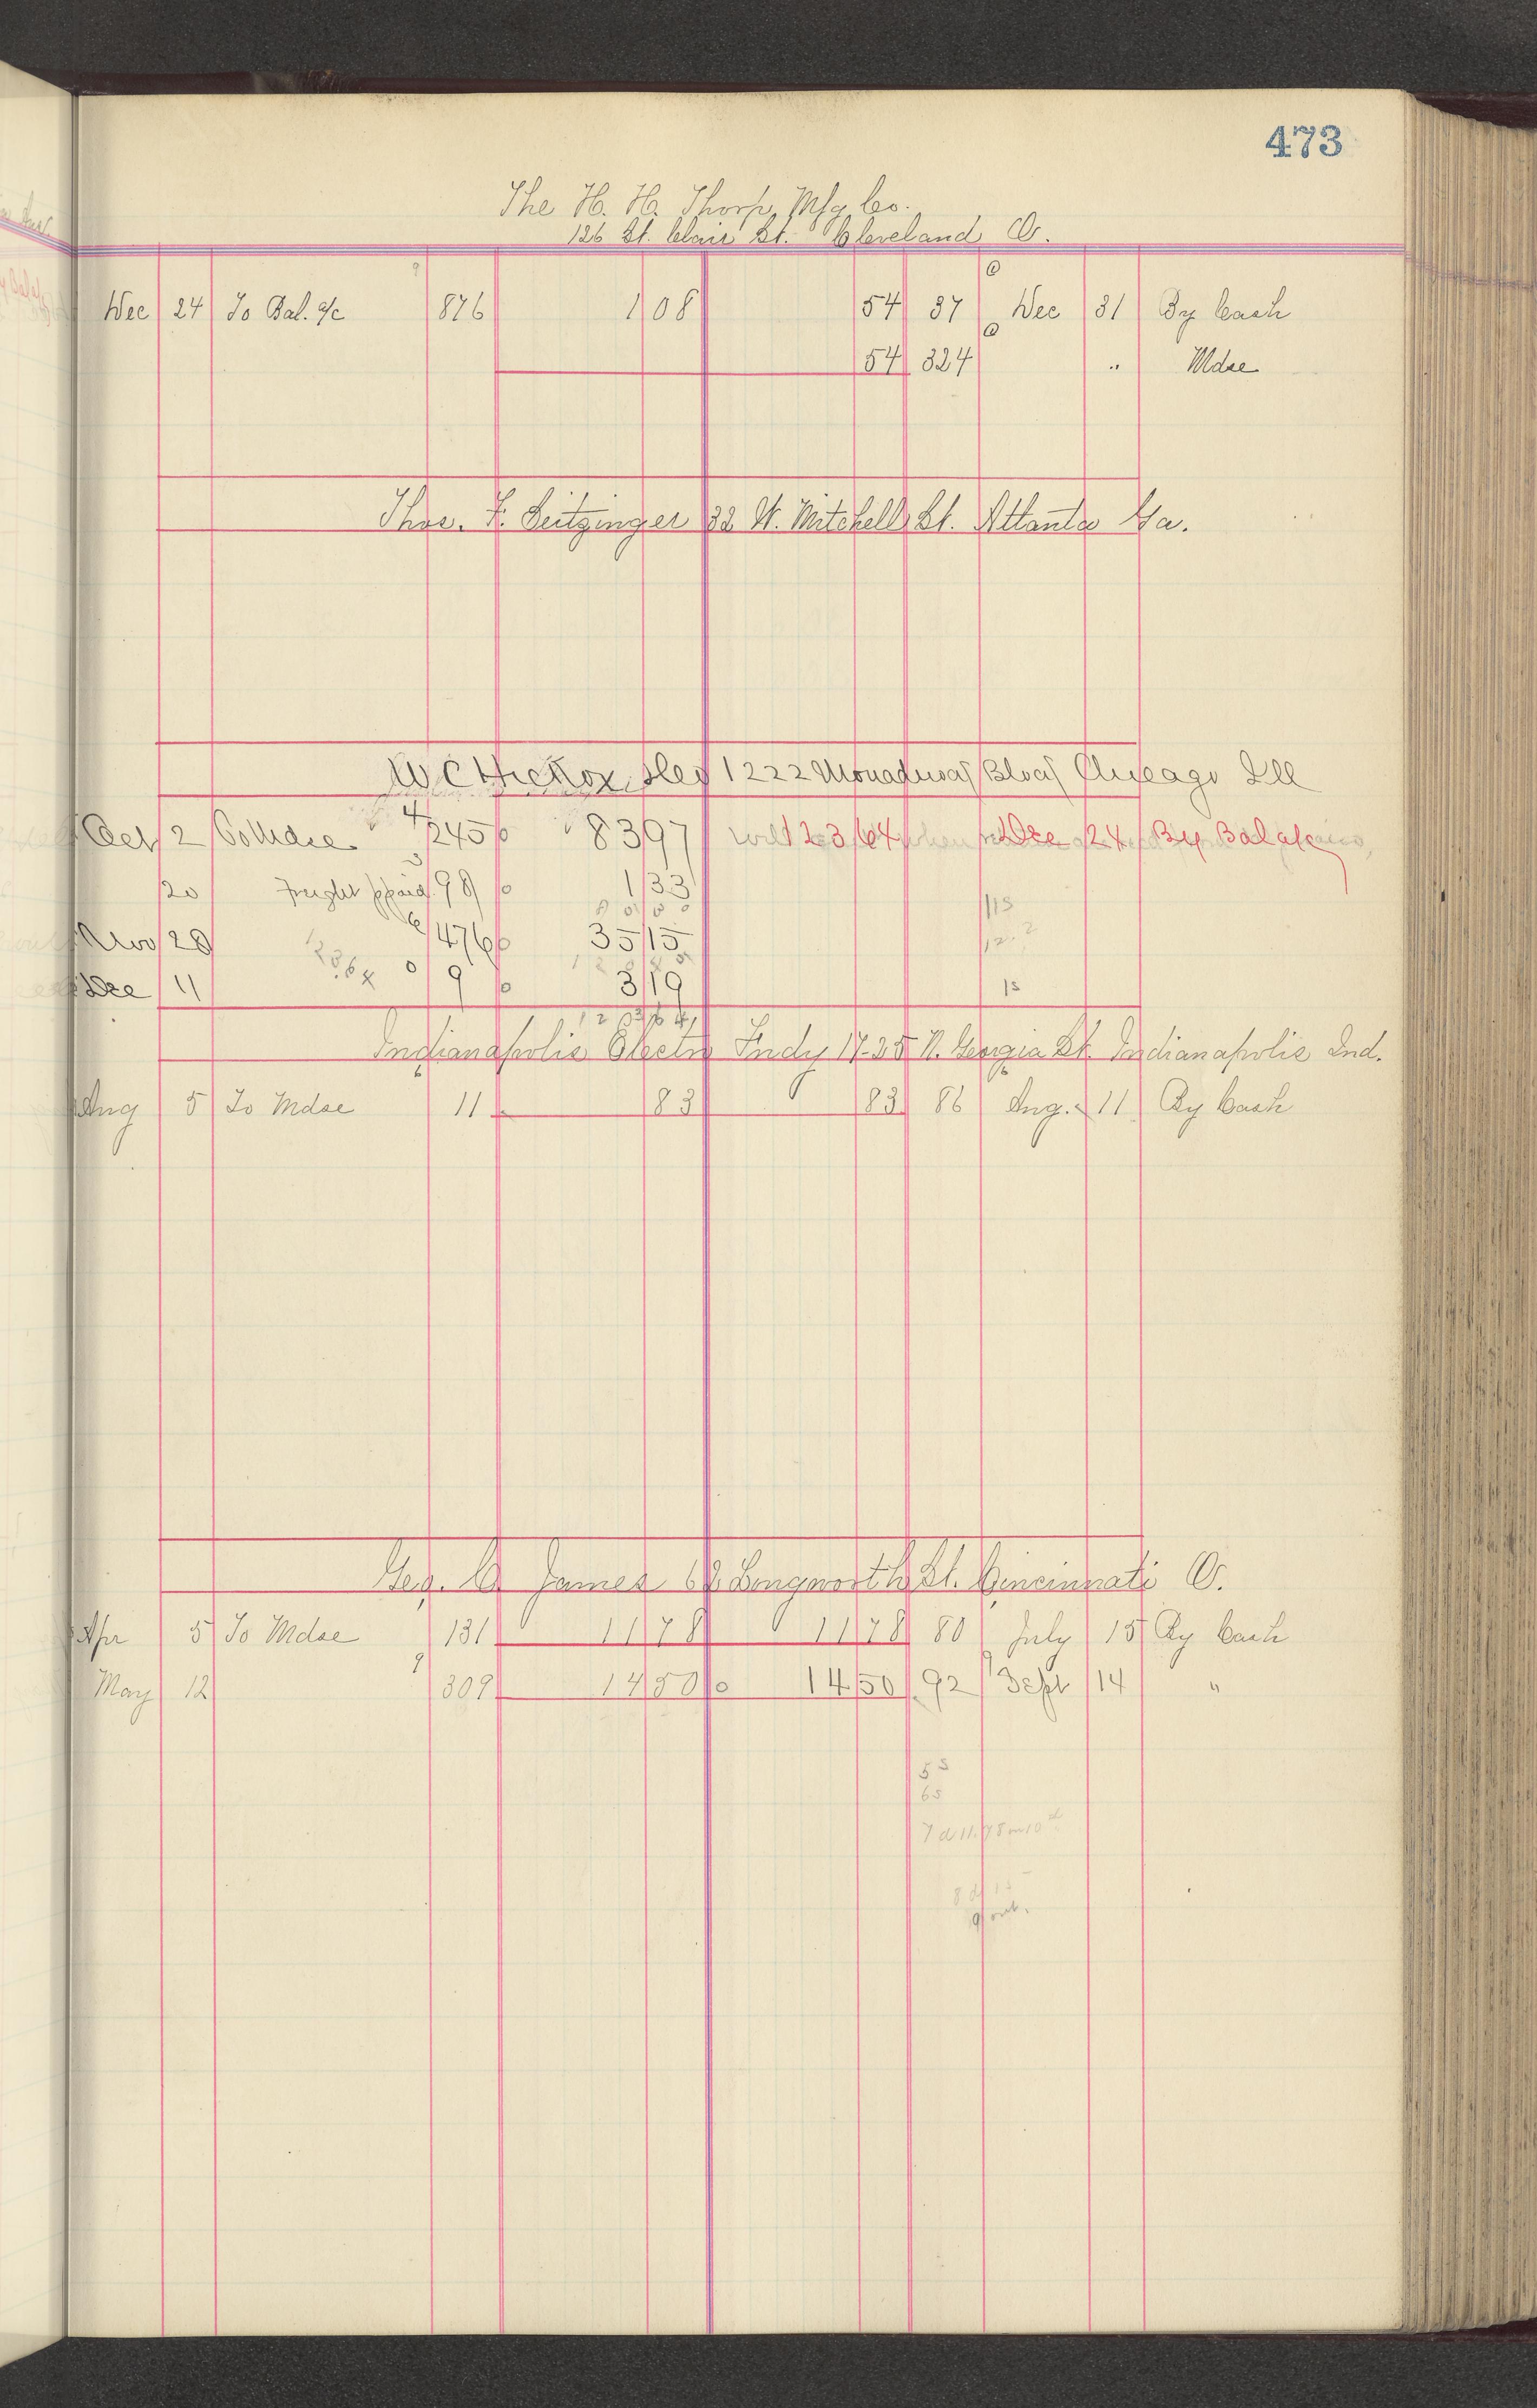 473
The H. H. Thorp Mfg Co.
126 St. Clair St. Cleveland O.
Dec 24 To Bal. a/c 876 1 08 54 37 Dec 31 By Cash
54 324 " Mdse
Thos. F. Seitzinger 32 W. Mitchell St. Atlanta Ga.
W C Hickox 1222 Monadnock Block Chicago Ill
Oct 2 To Mdse 245 83 97 123 64 Dec 24 By Bal a/c
20 Freight 98 1 33
115
Nov 28 476 35 15
2364
Dec 11 9 3 19
15
123 64
Indianapolis Electr Indy 17-25 W. Georgia St. Indianapolis Ind.
Aug 5 To Mdse 11 83 83 86 Aug. 11 By Cash
Geo. A James Longworth St. Cincinnati O.
Apr 5 To Mdse 131 11 78 11 78 80 July 15 By Cash
May 12 309 14 50 14 50 92 Sept 14 "
55
65
7 d 11.78 on 10